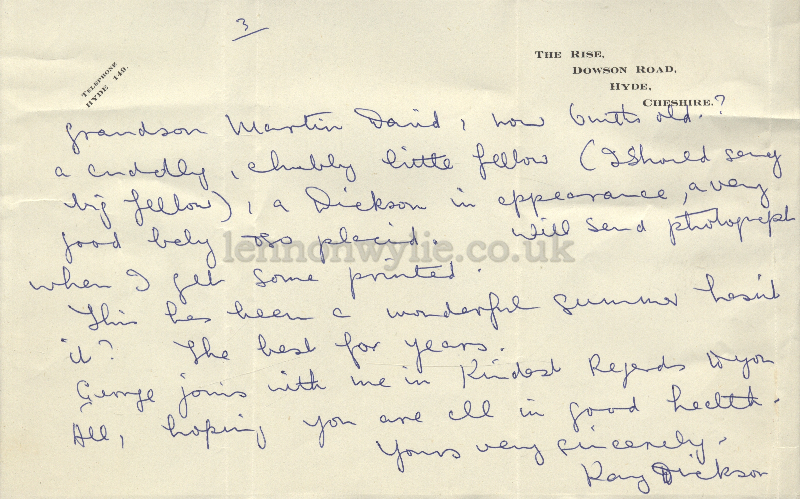 3
TELEPHONE
HYDE 149.
THE RISE,
DOWSON ROAD,
HYDE,
CHESHIRE.
grandson Martin David, now 6 mths old.?
a cuddly, chubby little fellow (I should say
big fellow), a Dickson in appearance, a very
good baby so placid. will send photograph
when I get some printed.
This has been a wonderful summer hasn't
it? The best for years.
George joins with me in Kindest Regards to you
All, hoping you are all in good health.
Yours very sincerely.
Kay Dickson
lennonwylie.co.uk